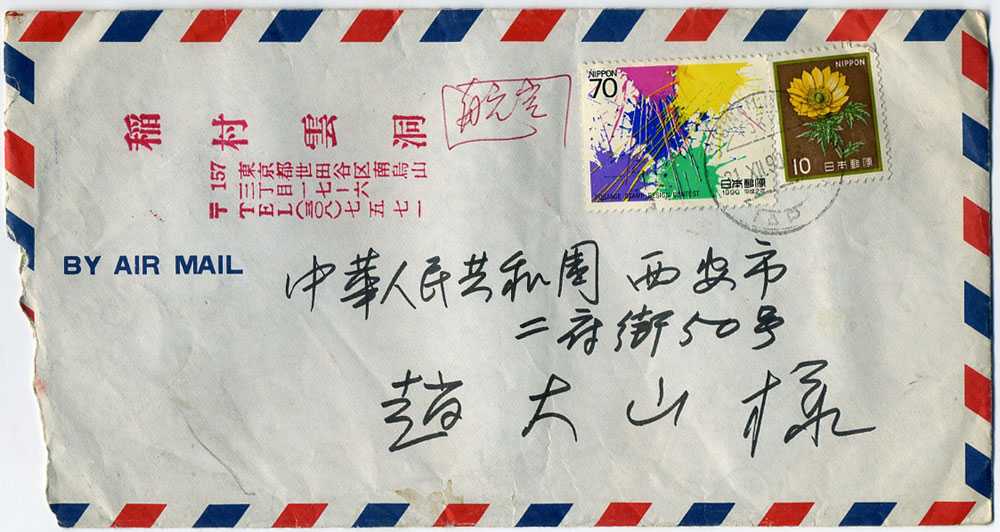 稲村雲洞
〒157 東京都世田谷区南烏山
三丁目一七ー六
TEL(三〇八)七五七一
航空
NIPPON
70
日本郵便
1990 平成2年
STAMP DESIGN CONTEST
NIPPON
10 日本郵便
XII 90
BY AIR MAIL
中華人民共和國 西安市
二府街50号
趙大山様